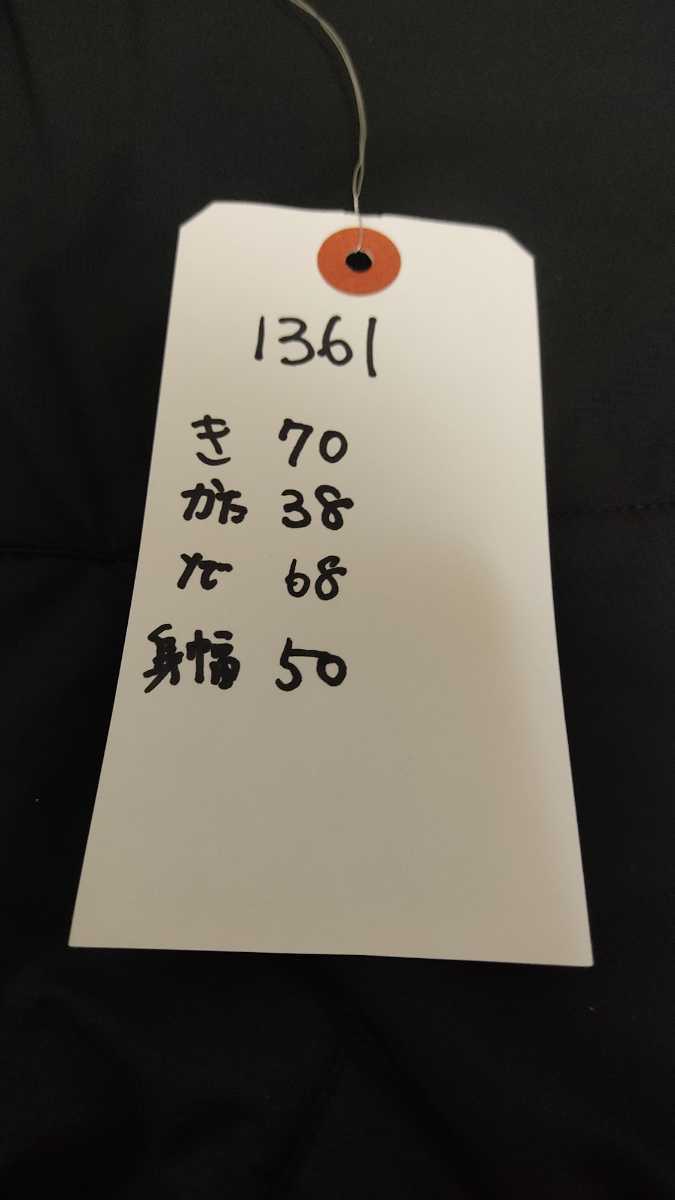 1361
き 70
かた 38
そで 68
身幅 50